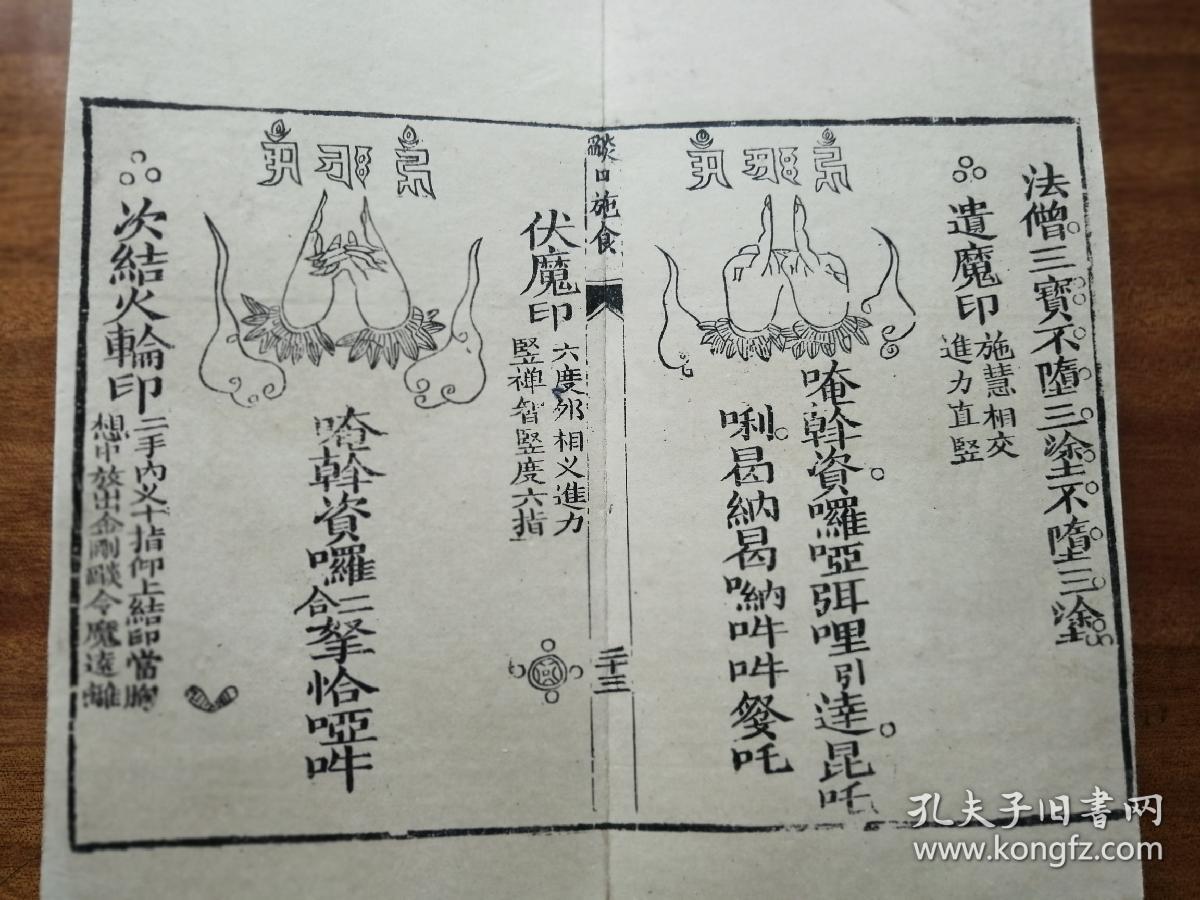 法僧三寶不墮三塗不墮三塗
遣魔印
施慧相交
進力直竪
唵斡資囉啞弭哩引達昆吒
唎曷納曷㘕吽吽發吒
𦦨口施食
二十三
伏魔印
六度外相义進力
竪禅智竪度六指
唵斡資囉二合拏恰啞吽
次結火輪印
二手內义十指仰上結印當胸
想印放出金剛燄令魔遠離
孔夫子旧书网
www.kongfz.com